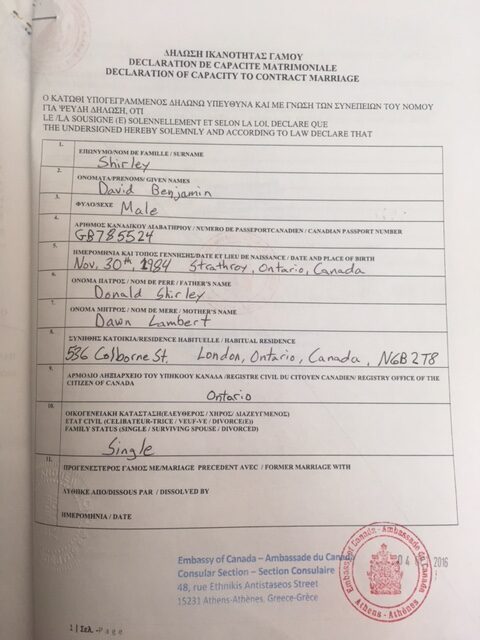 ΔΗΛΩΣΗ ΙΚΑΝΟΤΗΤΑΣ ΓΑΜΟΥ
DECLARATION DE CAPACITE MATRIMONIALE
DECLARATION OF CAPACITY TO CONTRACT MARRIAGE
Ο ΚΑΤΩΘΙ ΥΠΟΓΕΓΡΑΜΜΕΝΟΣ ΔΗΛΩΝΩ ΥΠΕΥΘΥΝΑ ΚΑΙ ΜΕ ΓΝΩΣΗ ΤΩΝ ΣΥΝΕΠΕΙΩΝ ΤΟΥ ΝΟΜΟΥ
ΓΙΑ ΨΕΥΔΗ ΔΗΛΩΣΗ, ΟΤΙ
LE /LA SOUSIGNE (E) SOLENNELLEMENT ET SELON LA LOI, DECLARE QUE
THE UNDERSIGNED HEREBY SOLEMNLY AND ACCORDING TO LAW DECLARE THAT
1. ΕΠΩΝΥΜΟ/NOM DE FAMILLE / SURNAME
Shirley
2. ΟΝΟΜΑΤΑ/PRENOMS/ GIVEN NAMES
David Benjamin
3. ΦΥΛΟ/SEXE Male
4. ΑΡΙΘΜΟΣ ΚΑΝΑΔΙΚΟΥ ΔΙΑΒΑΤΗΡΙΟΥ / NUMERO DE PASSEPORTCANADIEN / CANADIAN PASSPORT NUMBER
GB785524
5. ΗΜΕΡΟΜΗΝΙΑ ΚΑΙ ΤΟΠΟΣ ΓΕΝΝΗΣΗΣ/DATE ET LIEU DE NAISSANCE / DATE AND PLACE OF BIRTH
Nov. 30th, 1984 Strathroy, Ontario, Canada
6. ΟΝΟΜΑ ΠΑΤΡΟΣ / NOM DE PERE / FATHER'S NAME
Donald Shirley
7. ΟΝΟΜΑ ΜΗΤΡΟΣ / NOM DE MERE / MOTHER'S NAME
Dawn Lambert
8. ΣΥΝΗΘΗΣ ΚΑΤΟΙΚΙΑ/RESIDENCE HABITUELLE / HABITUAL RESIDENCE
536 Colborne St. London, Ontario, Canada, N6B 2T8
9. ΑΡΜΟΔΙΟ ΛΗΞΙΑΡΧΕΙΟ ΤΟΥ ΥΠΗΚΟΟΥ ΚΑΝΑΔΑ /REGISTRE CIVIL DU CITOYEN CANADIEN/ REGISTRY OFFICE OF THE
CITIZEN OF CANADA
Ontario
10. ΟΙΚΟΓΕΝΕΙΑΚΗ ΚΑΤΑΣΤΑΣΗ(ΕΛΕΥΘΕΡΟΣ / ΧΗΡΟΣ/ ΔΙΑΖΕΥΓΜΕΝΟΣ)
ETAT CIVIL (CELIBATEUR-TRICE / VEUF-VE / DIVORCE(E))
FAMILY STATUS (SINGLE / SURVIVING SPOUSE / DIVORCED)
Single
11. ΠΡΟΓΕΝΕΣΤΕΡΟΣ ΓΑΜΟΣ ΜΕ/MARIAGE PRECEDENT AVEC / FORMER MARRIAGE WITH
ΛΥΘΗΚΕ ΑΠΟ/DISSOUS PAR / DISSOLVED BY
ΗΜΕΡΟΜΗΝΙΑ / DATE
Embassy of Canada – Ambassade du Canada
Consular Section – Section Consulaire
48, rue Ethnikis Antistaseos Street
15231 Athens-Athènes. Greece-Grèce
Embassy of Canada - Ambassade du Canada
Athens - Athènes
2016
1 | Σελ. - Page